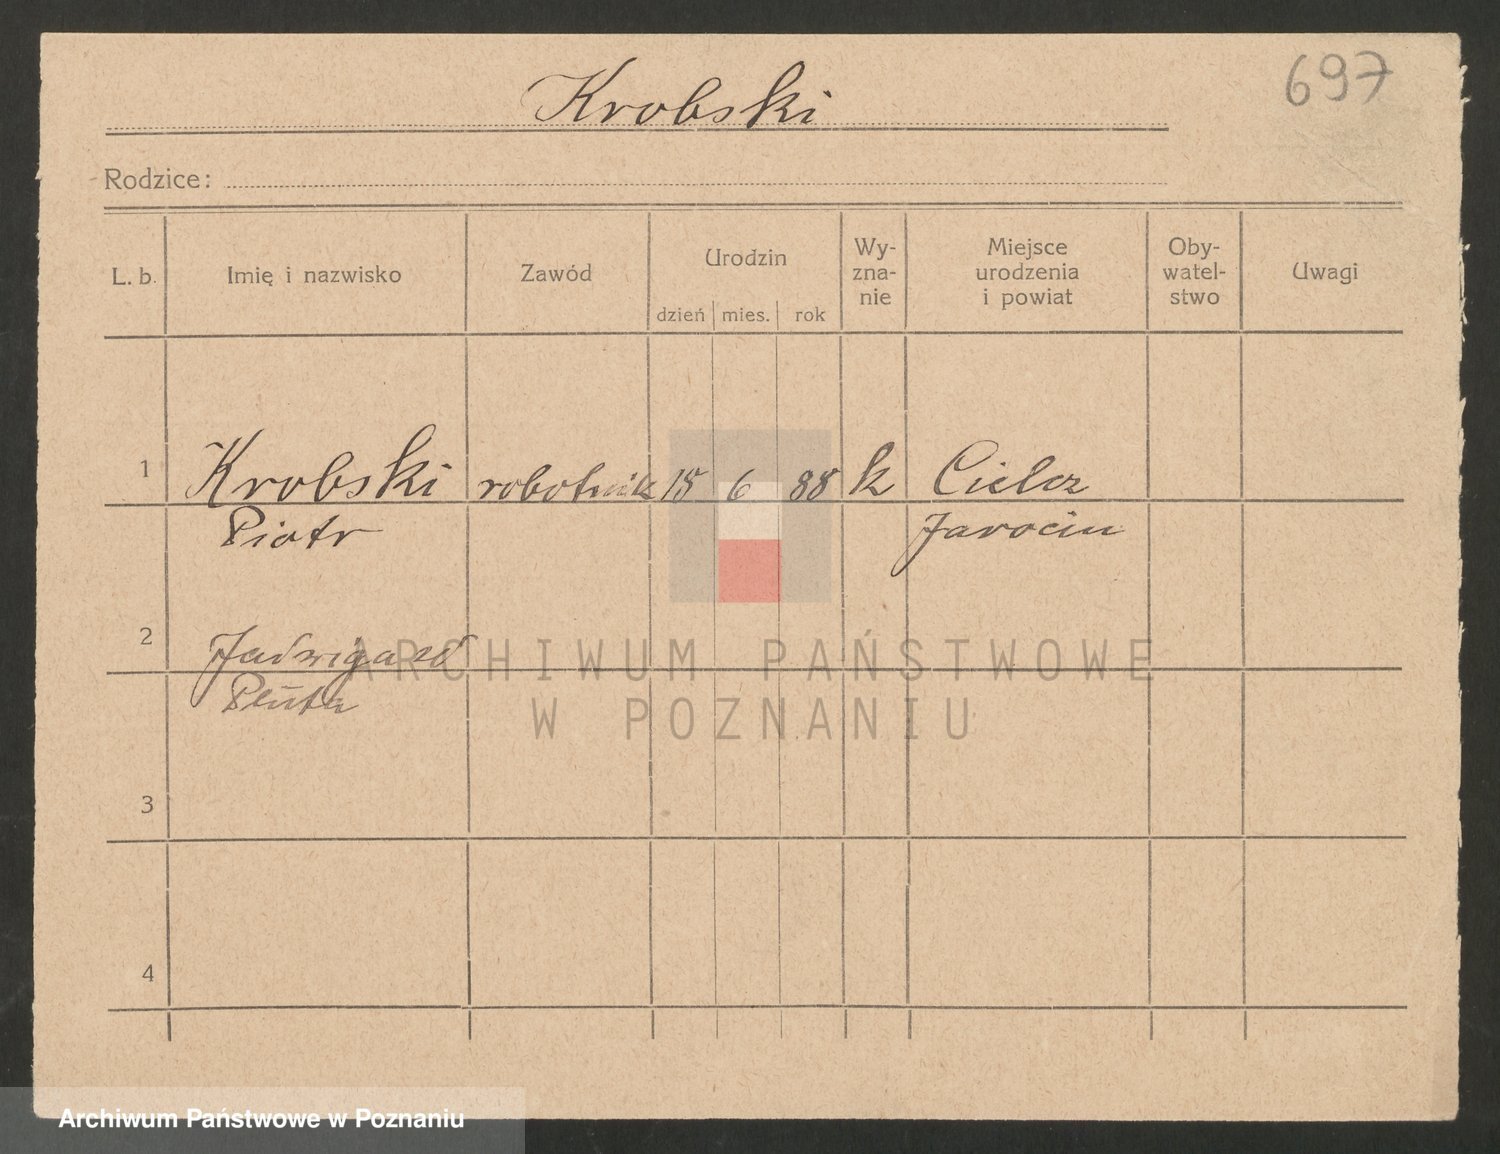 697
Krobski
Rodzice:
L. b. Imię i nazwisko Zawód Urodzin dzień mies. rok Wy-zna-nie Miejsce urodzenia i powiat Oby-watel-stwo Uwagi
1 Krobski robotnik 15 6 88 k Cielcz
Piotr Jarocin
2 Jadwiga zd
Pluta
3
4
ARCHIWUM PAŃSTWOWE
W POZNANIU
Archiwum Państwowe w Poznaniu